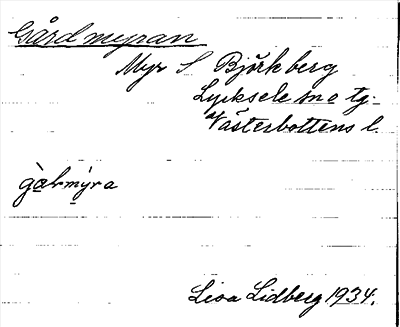 Gårdmyran
Myr S Björkberg
Lycksele sn o tg.
Västerbottens l.
Lisa Lidberg 1934.